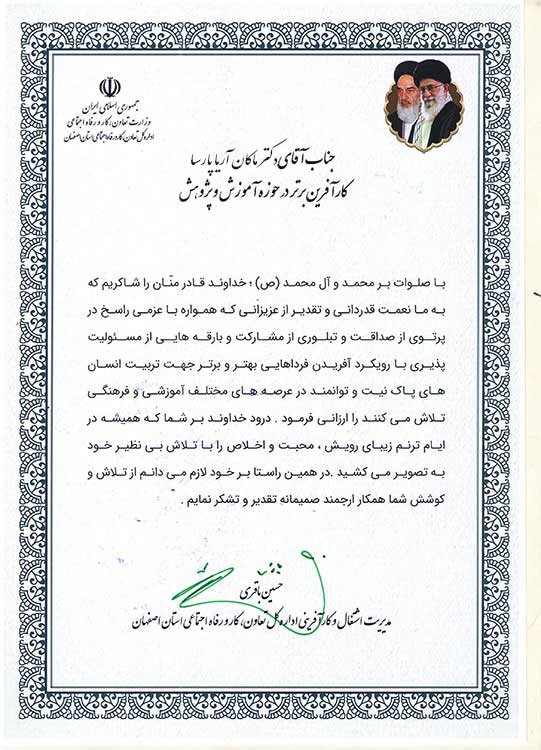 جمهوری اسلامی ایران
وزارت تعاون، کار و رفاه اجتماعی
اداره کل تعاون، کار و رفاه اجتماعی استان اصفهان
جناب آقای دکتر ماکان آریا پارسا
کارآفرین برتر در حوزه آموزش و پژوهش
با صلوات بر محمد و آل محمد (ص) ؛ خداوند قادر منّان را شاکریم که
به ما نعمت قدردانی و تقدیر از عزیزانی که همواره با عزمی راسخ در
پرتوی از صداقت و تبلوری از مشارکت و بارقه هایی از مسئولیت
پذیری با رویکرد آفریدن فرداهایی بهتر و برتر جهت تربیت انسان
های پاک نیت و توانمند در عرصه های مختلف آموزشی و فرهنگی
تلاش می کنند را ارزانی فرمود . درود خداوند بر شما که همیشه در
ایام ترنم زیبای رویش ، محبت و اخلاص را با تلاش بی نظیر خود
به تصویر می کشید .در همین راستا بر خود لازم می دانم از تلاش و
کوشش شما همکار ارجمند صمیمانه تقدیر و تشکر نمایم .
حسین باقری
مدیریت اشتغال و کارآفرینی اداره کل تعاون، کار و رفاه اجتماعی استان اصفهان